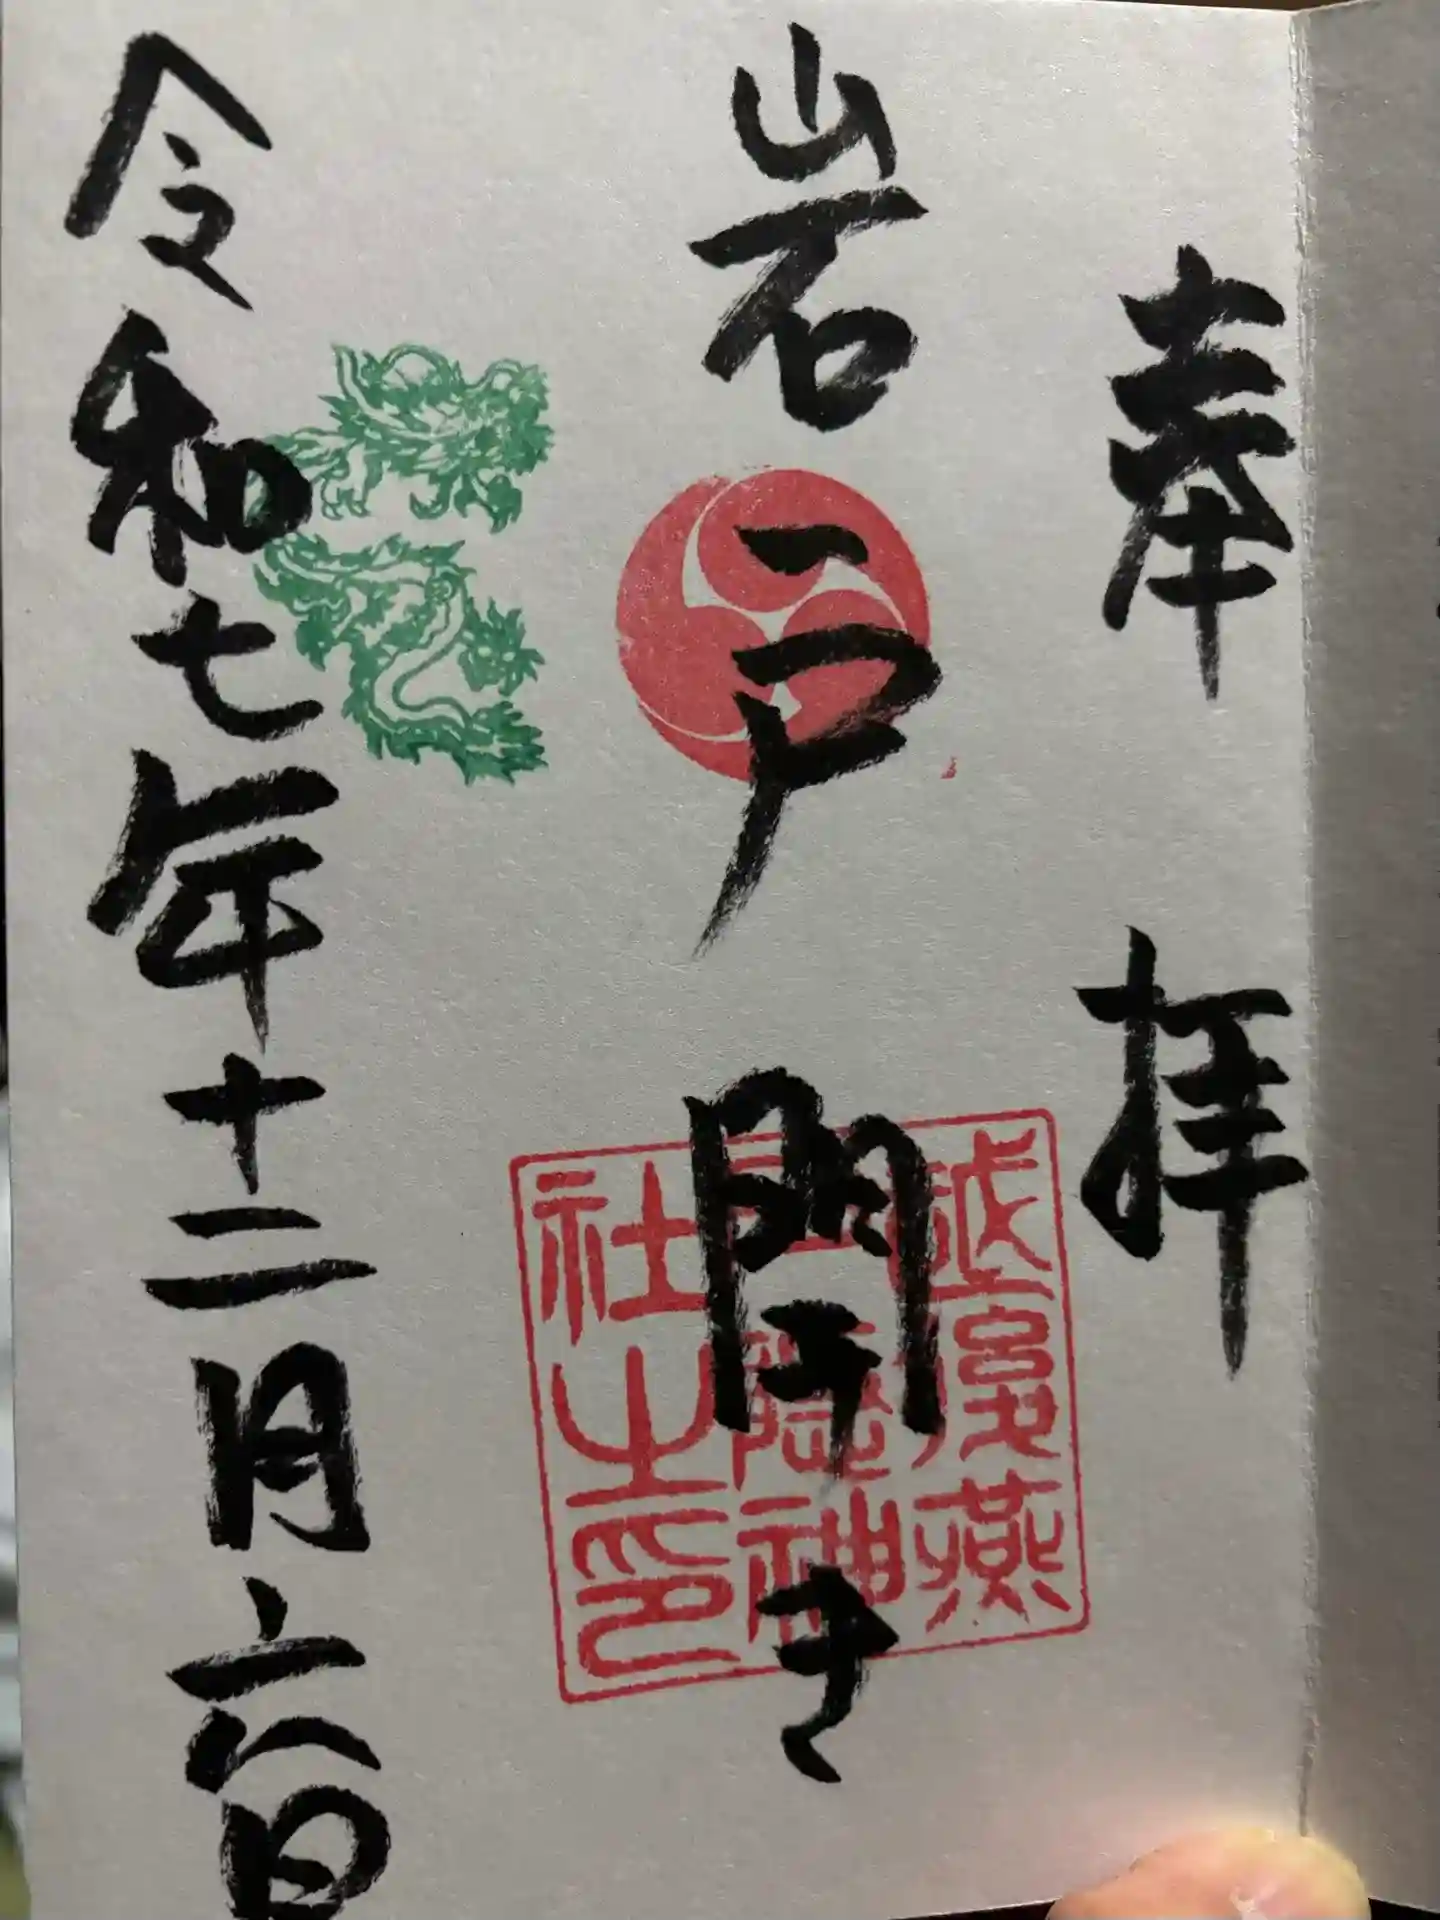 奉拝
岩戸開き
越後燕
戸隠神
社之印
令和七年十二月六日